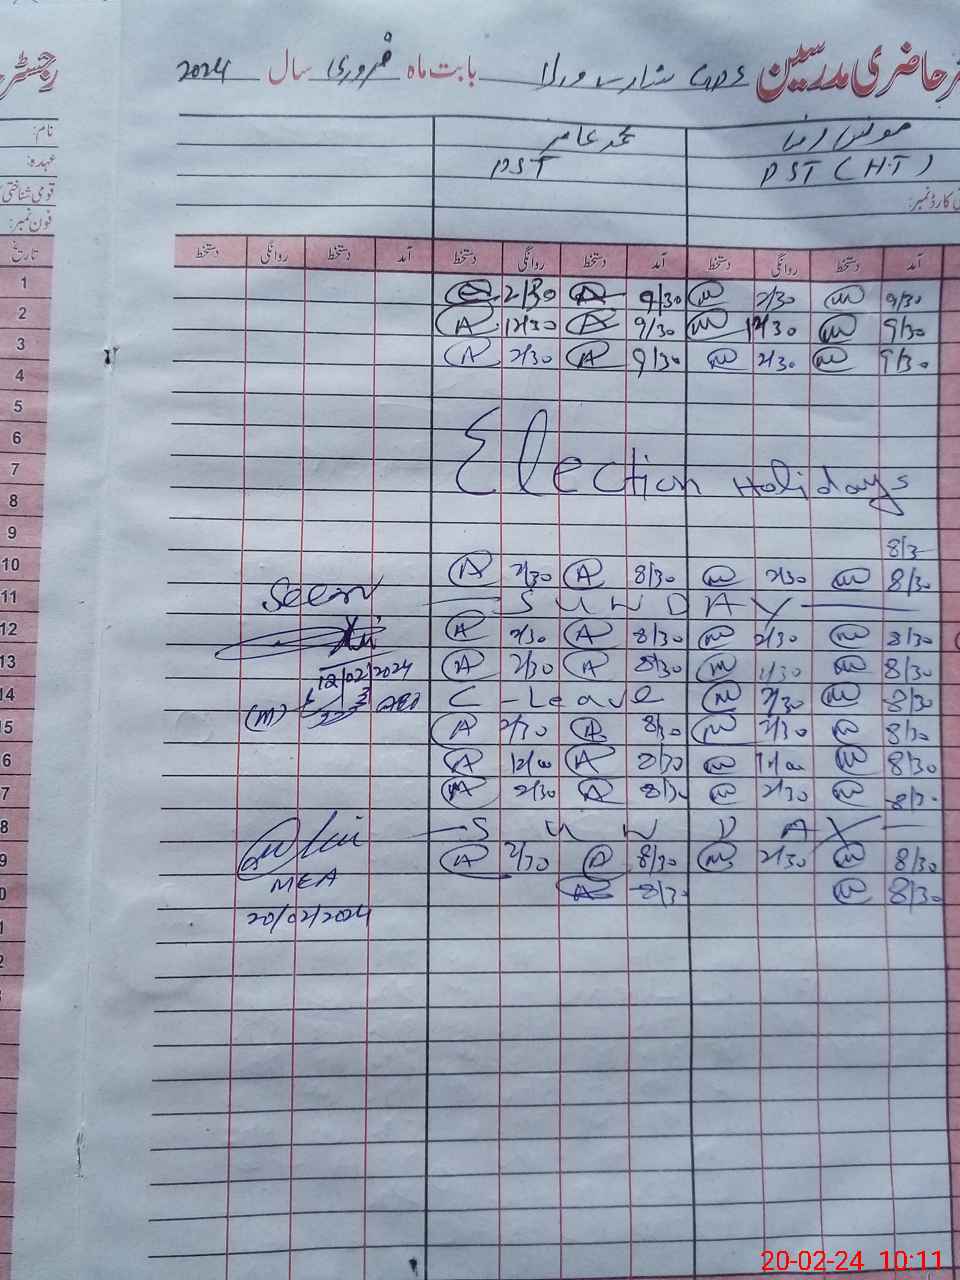 رجسٹر حاضری مدرسین GPS بابت ماہ فروری سال 2024
نام:
محمد عامر
عہدہ:
PST PST (H.T)
قومی شناختی کارڈ نمبر:
فون نمبر:
تاریخ آمد دستخط روانگی دستخط آمد دستخط روانگی دستخط آمد دستخط روانگی دستخط
1 9/30 m 2/30 m 9/30 A 2/30
2 9/30 m 12/30 m 9/30 A 12/30 A
3 9/30 m 2/30 m 9/30 A 2/30 A
4
5
6
7 Election Holidays
8
9
8/3
10 8/30 m 2/30 m 8/30 A 2/30 A
Seen
11 SUNDAY
12 8/30 m 2/30 m 8/30 A 2/30 A
12/02/2024
13 8/30 m 2/30 m 8/30 A 2/30 A
14 8/30 m 2/30 m C-Leave
(M) AEO
15 8/30 m 2/30 m 8/30 A 2/30 A
6 8/30 m 12/00 m 8/30 A 12/00 A
7 8/3 m 2/30 m 8/30 A 2/30 A
8 SUNDAY
9 8/30 m 2/30 m 8/30 A 2/30 A
MEA
0 8/30 m 8/30 A
20/02/2024
1
2
3
20-02-24 10:11